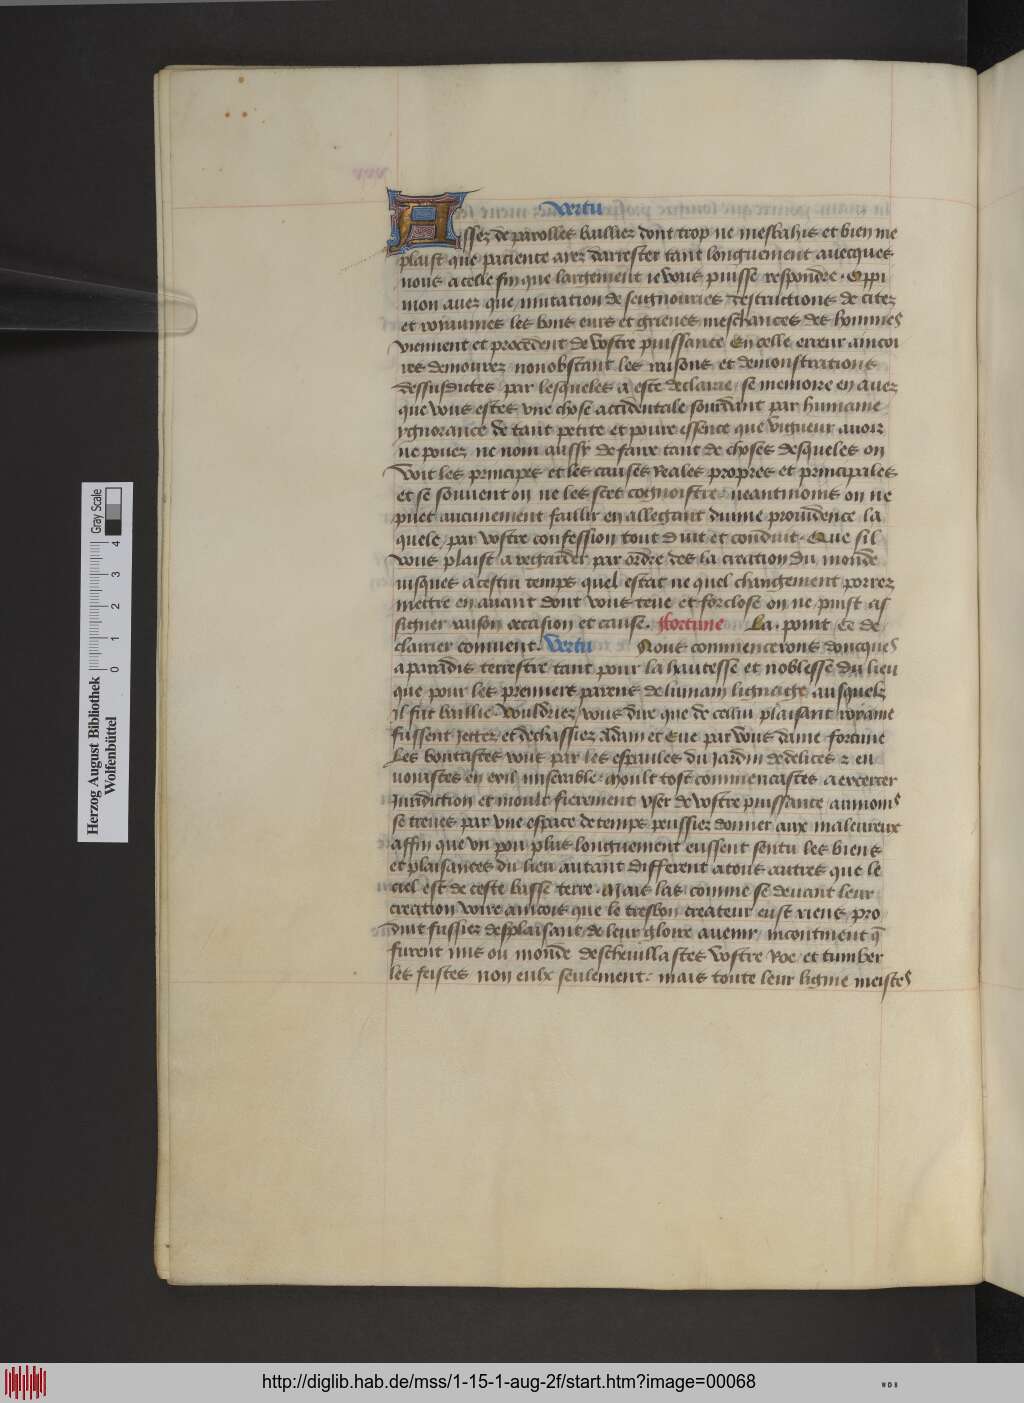 Vertu
Assez de parolles bailliez dont trop ne mesbahis et bien me
plaist que pacience ayez darrester tant longuement auecques
nous a celle fin que largement ie vous puisse respondre. Oppi
nion auez que mutation de seignouries destructions de citez
et royaumes les bons eurs et grieues meschances des hommes
viennent et procedent de vostre puissance En celle erreur aincoi
ies demourez nonobstant les raisons et demonstrations
dessusdictes par lesqueles a este declairie se memoire en auez
que vous estes vne chose accidentale sourdant par humaine
ygnorance de tant petite et poure essence que vigueur auoir
ne pouez ne nom aussy de faire tant de choses desqueles on
voit les principes et les causes reales propres et principales
et se souuent on ne les scet cognoistre neantmoins on ne
puet aucunement faillir en allegant diuine prouidence la
quele par vostre confession tout duit et conduit. Que sil
vous plaist a regarder par ordre des la creation du monde
iusques a cestui temps quel estat ne quel changement porrez
mettre en auant dont vous teue et forclose on ne puist as
signer raison occasion et cause. Fortune La point Ce de
clairier conuient. Vertu Nous commencerons doncques
a paradis terrestre tant pour la haultesse et noblesse du lieu
que pour les premiers parens de lumain lignaige ausquelz
Il fut baillie. Vouldriez vous dire que de cellui plaisant royame
fussent Jettez et dechassiez Adam et Eue par vous dame fortune
Les boutastes vous par les espaules du Jardin de delices & en
uoiastes en exil miserable. Moult tost commencastes a exercer
Juridiction et moult fierement vser de vostre puissance aumoins
se treues par vne espace de temps peussiez donner aux maleureux
affin que vn pou plus longuement eussent sentu les biens
et plaisances du lieu autant different a tous autres que le
ciel est de ceste basse terre. Mais las comme se deuant leur
creation voire aincois que le tresbon createur eust riens pro
duit fussiez desplaisant de leur gloire auenir / incontinent q̄
furent mis ou monde descheuillastes vostre Roe et tumber
les feistes non eulx seulement. mais toute leur ligne meistes
Herzog August Bibliothek
Wolfenbüttel
0 1 2 3 4
Gray Scale
http://diglib.hab.de/mss/1-15-1-aug-2f/start.htm?image=00068
WDB